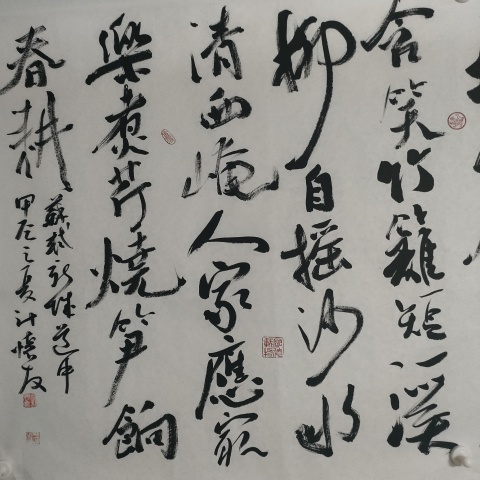 含笑竹籬短溪
柳自搖沙水
清西崦人家應最
樂煮芹燒笋餉
春耕
蘇軾新城道中
甲辰之夏